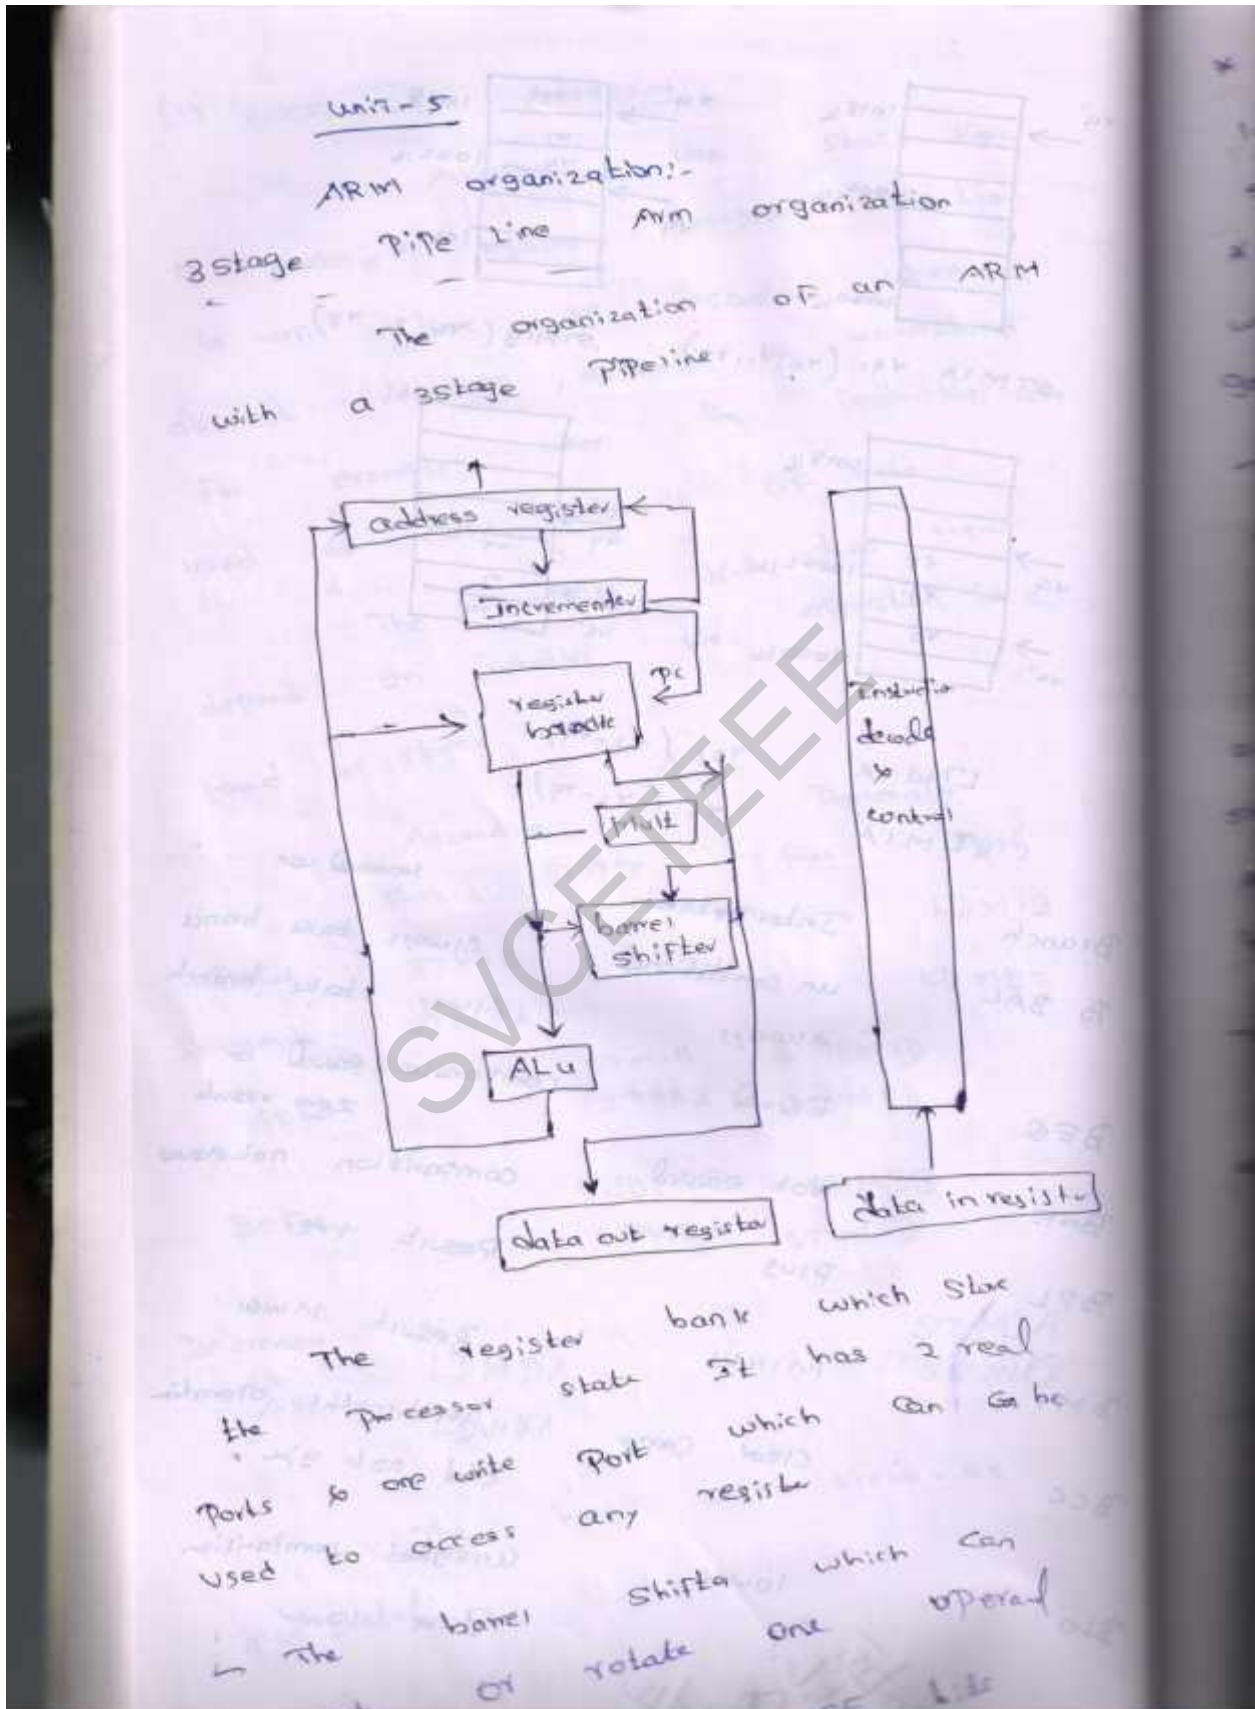 Unit-5
ARM organization:-
3 stage Pipe Line Arm organization
The organization of an ARM
with a 3stage Pipeline
address register
Incrementer
PC
register
Mult
barrel
shifter
ALU
decode
&
control
data out register
data in register
The register bank which
the Processor state It has 2 real
Ports & one write Port which can
used to access any registe
The barrel shifta which can
or rotate one operand
SVCETEEE